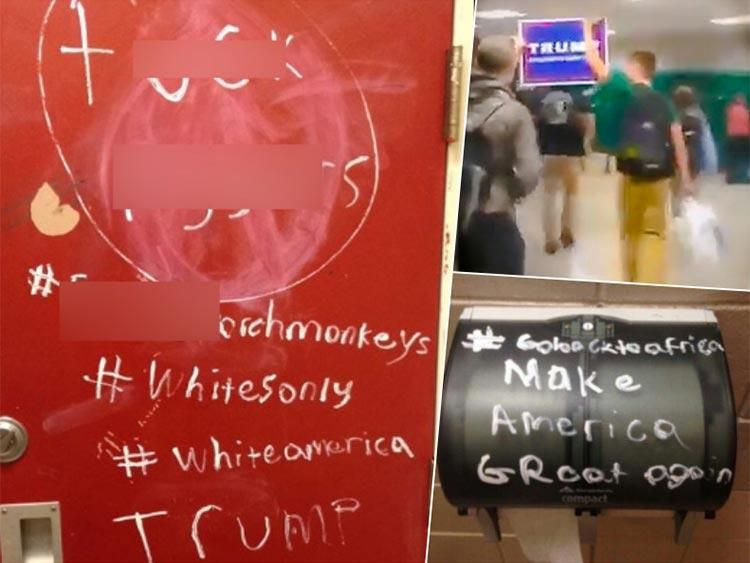 # orchmonkeys
# Whitesonly
# whiteamerica
TRUMP
TRUMP
# Gobacktoafrica
Make
America
GReat again
compact